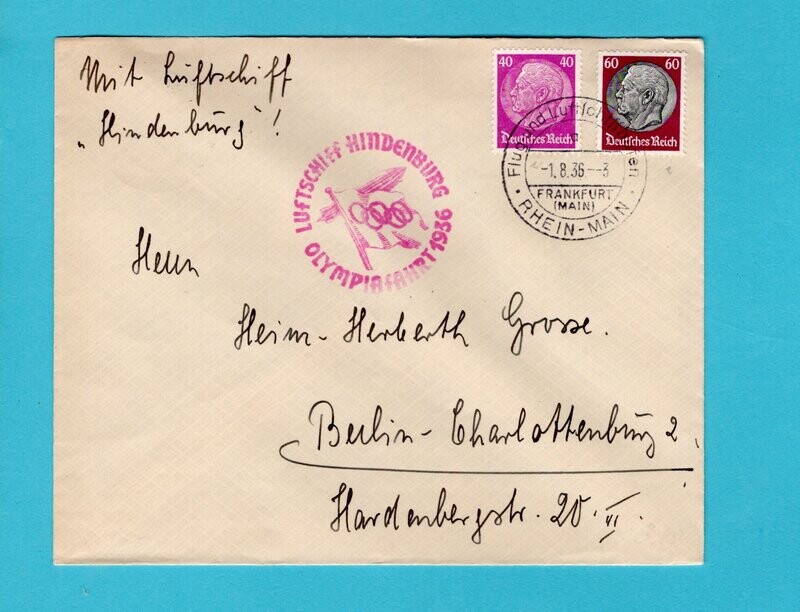 Mit Luftschiff
„Hindenburg"!
40 40
Deutsches Reich
60 60
Deutsches Reich
LUFTSCHIFF HINDENBURG
OLYMPIAFAHRT 1936
Flug und Luftschiffhafen
-1.8.36--3
FRANKFURT
(MAIN)
RHEIN-MAIN
Herrn
Heinz-Herberth Grosse.
Berlin-Charlottenburg 2,
Hardenbergstr. 20. VI.